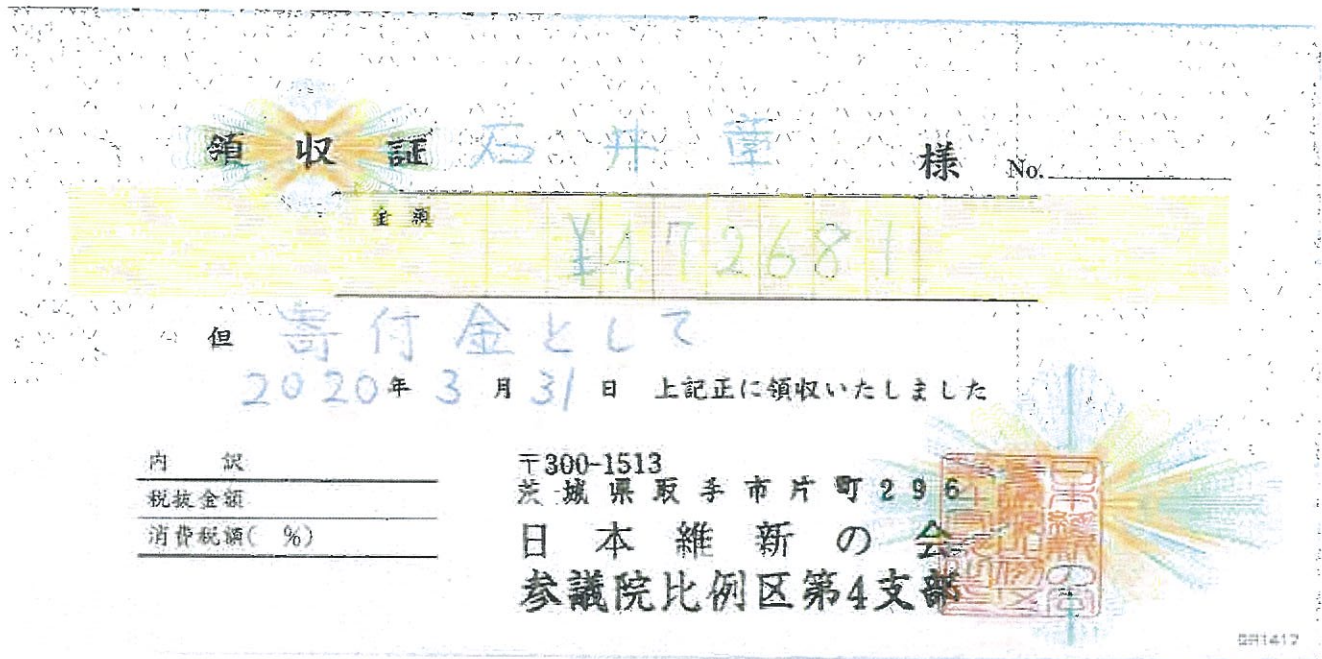 領収証 石井章 様 No.
金額 ¥472681
但 寄付金として
2020年3月31日 上記正に領収いたしました
内訳
税抜金額
消費税額( %)
〒300-1513
茨城県取手市片町296
日本維新の会
参議院比例区第4支部